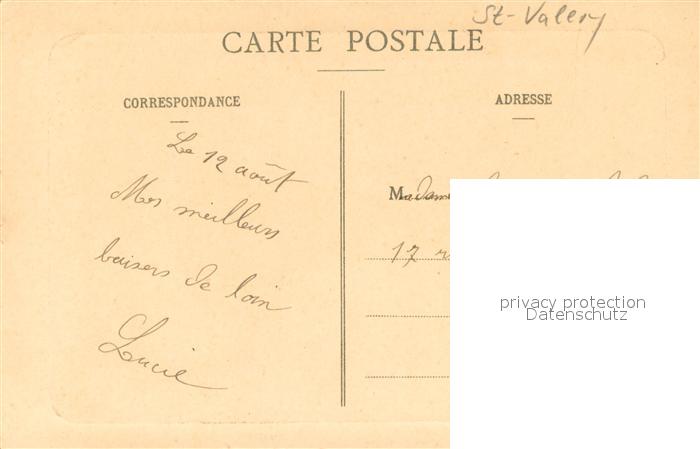 St-Valery
CARTE POSTALE
CORRESPONDANCE
ADRESSE
Le 12 août
Mes meilleurs
baisers de loin
Lucie
Madame
17
privacy protection
Datenschutz